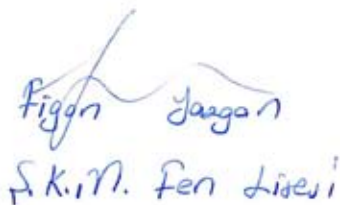 Figen Yazgan
Ş.K.M. Fen Lisesi